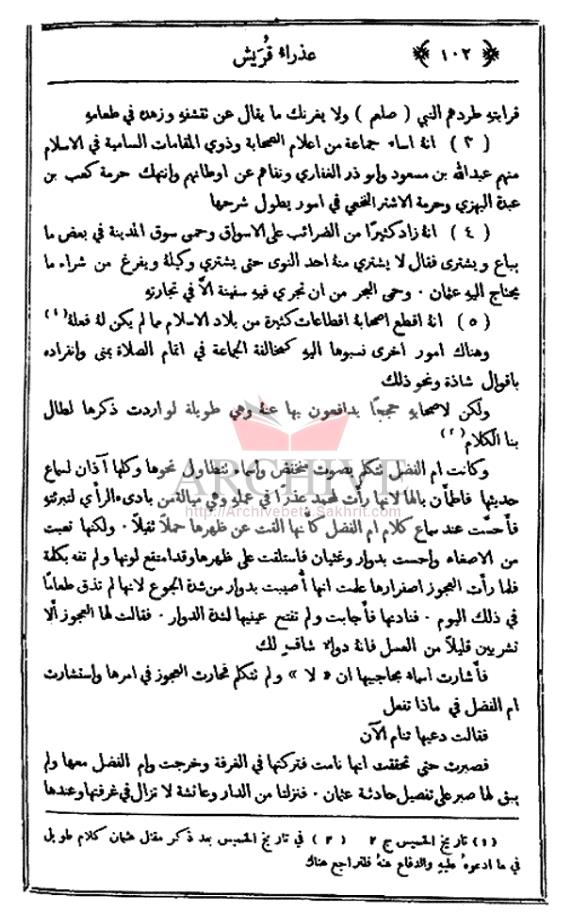 ﴿ ١٠٢ ﴾ عذراء قُرَيش
قرابته طردهم النبي ( صلعم ) ولا يغرنك ما يقال عن تقشفه وزهده في طعامه
( ٣ ) انهُ اساء جماعة من اعلام الصحابة وذوي المقامات السامية في الاسلام
منهم عبدالله بن مسعود وابو ذر الغفاري ونفاهم عن اوطانهم وانتهك حرمة كعب بن
عبدة البهزي وحرمة الاشتر النخعي في امور يطول شرحها
( ٤ ) انهُ زاد كثيرًا من الضرائب على الاسواق وحمى سوق المدينة في بعض ما
يباع ويشترى فقال لا يشتري منهُ احد النوى حتى يشتري وكيلهُ ويفرغ من شراء ما
يحتاج اليه عثمان ٠ وحمى البحر من ان تجري فيه سفينة الاَّ في تجارته
( ٥ ) انهُ اقطع اصحابهُ اقطاعات كثيرة من بلاد الاسلام مما لم يكن لهُ فعلهُ (١)
وهناك امور اخرى نسبوها اليه كمخالفة الجماعة في اتمام الصلاة بمنى وانفراده
باقوال شاذة ونحو ذلك
ولكن لاصحابه حججًا يدافعون بها عنهُ وهي طويلة لو اردت ذكرها لطال
بنا الكلام (٢)
وكانت ام الفضل تتكلم بصوت منخفض واسماء تتطاول نحوها وكلها آذان لسماع
حديثها فاطمأن بالها لانها رأت لمحمد عذرًا في عمله وهي ميالة من بادىء الرأي لتبرئته
فأحسَّت عند سماع كلام ام الفضل كأنها القت عن ظهرها حملاً ثقيلاً ٠ ولكنها تعبت
من الاصغاء واحست بدوار وغثيان فاستلقت على ظهرها وقد امتقع لونها ولم تفه بكلمة
فلما رأت العجوز اصفرارها علمت انها أُصيبت بدوار من شدة الجوع لانها لم تذق طعامًا
في ذلك اليوم ٠ فنادتها فأجابت ولم تفتح عينيها لشدة الدوار ٠ فقالت لها العجوز أَلا
تشربين قليلاً من العسل فانهُ دواء شافٍ لك
فأشارت اسماء بحاجبيها ان « لا » ولم تتكلم فحارت العجوز في امرها واستشارت
ام الفضل في ماذا تفعل
فقالت دعيها تنام الآن
فصبرت حتى تحققت انها نامت فتركتها في الغرفة وخرجت وام الفضل معها ولم
يبق لها صبر على تفصيل حادثة عثمان ٠ فنزلتا من الدار وعائشة لا تزال في غرفتها وعندها
(١) تاريخ الخميس ج ٢ (٢) في تاريخ الخميس بعد ذكر مقتل عثمان كلام طويل
في ما ادعوهُ عليه والدفاع عنهُ فلتراجع هناك
ARCHIVE
http://Archivebeta.Sakhrit.com